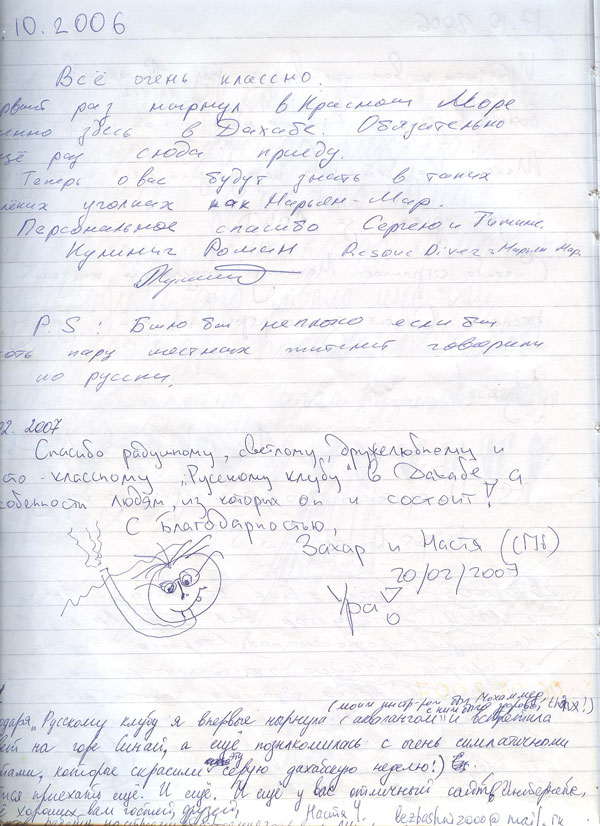 .10.2006
Всё очень классно.
раз нырнул в Красном Море
здесь в Дахабе. Обязательно
раз сюда приеду.
Теперь о вас будут знать в таких
уголках как Нарьян-Мар.
Персональное спасибо Сергею и
Кулинич Роман Rescue Diver г. Нарьян Мар.
P.S: Было бы неплохо если бы
пару местных жителей говорили
по русски.
02. 2007
Спасибо радушному, светлому, дружелюбному и
классному "Русскому клубу" в Дахабе, а
людям, из которых он и состоит!
С Благодарностью,
Захар и Настя (СПб)
20/02/2007
Ура!
(моим инстр-ом был Мохаммед,
"Русскому клубу я впервые нырнула с аквалангом и встретила
на горе Синай, а ещё познакомилась с очень симпатичными
которые скрасили серую дахабскую неделю!)
приехать ещё. И ещё. И ещё у вас отличный сайт в Интернете.
хороших вам гостей, друзей, Настя Ч.